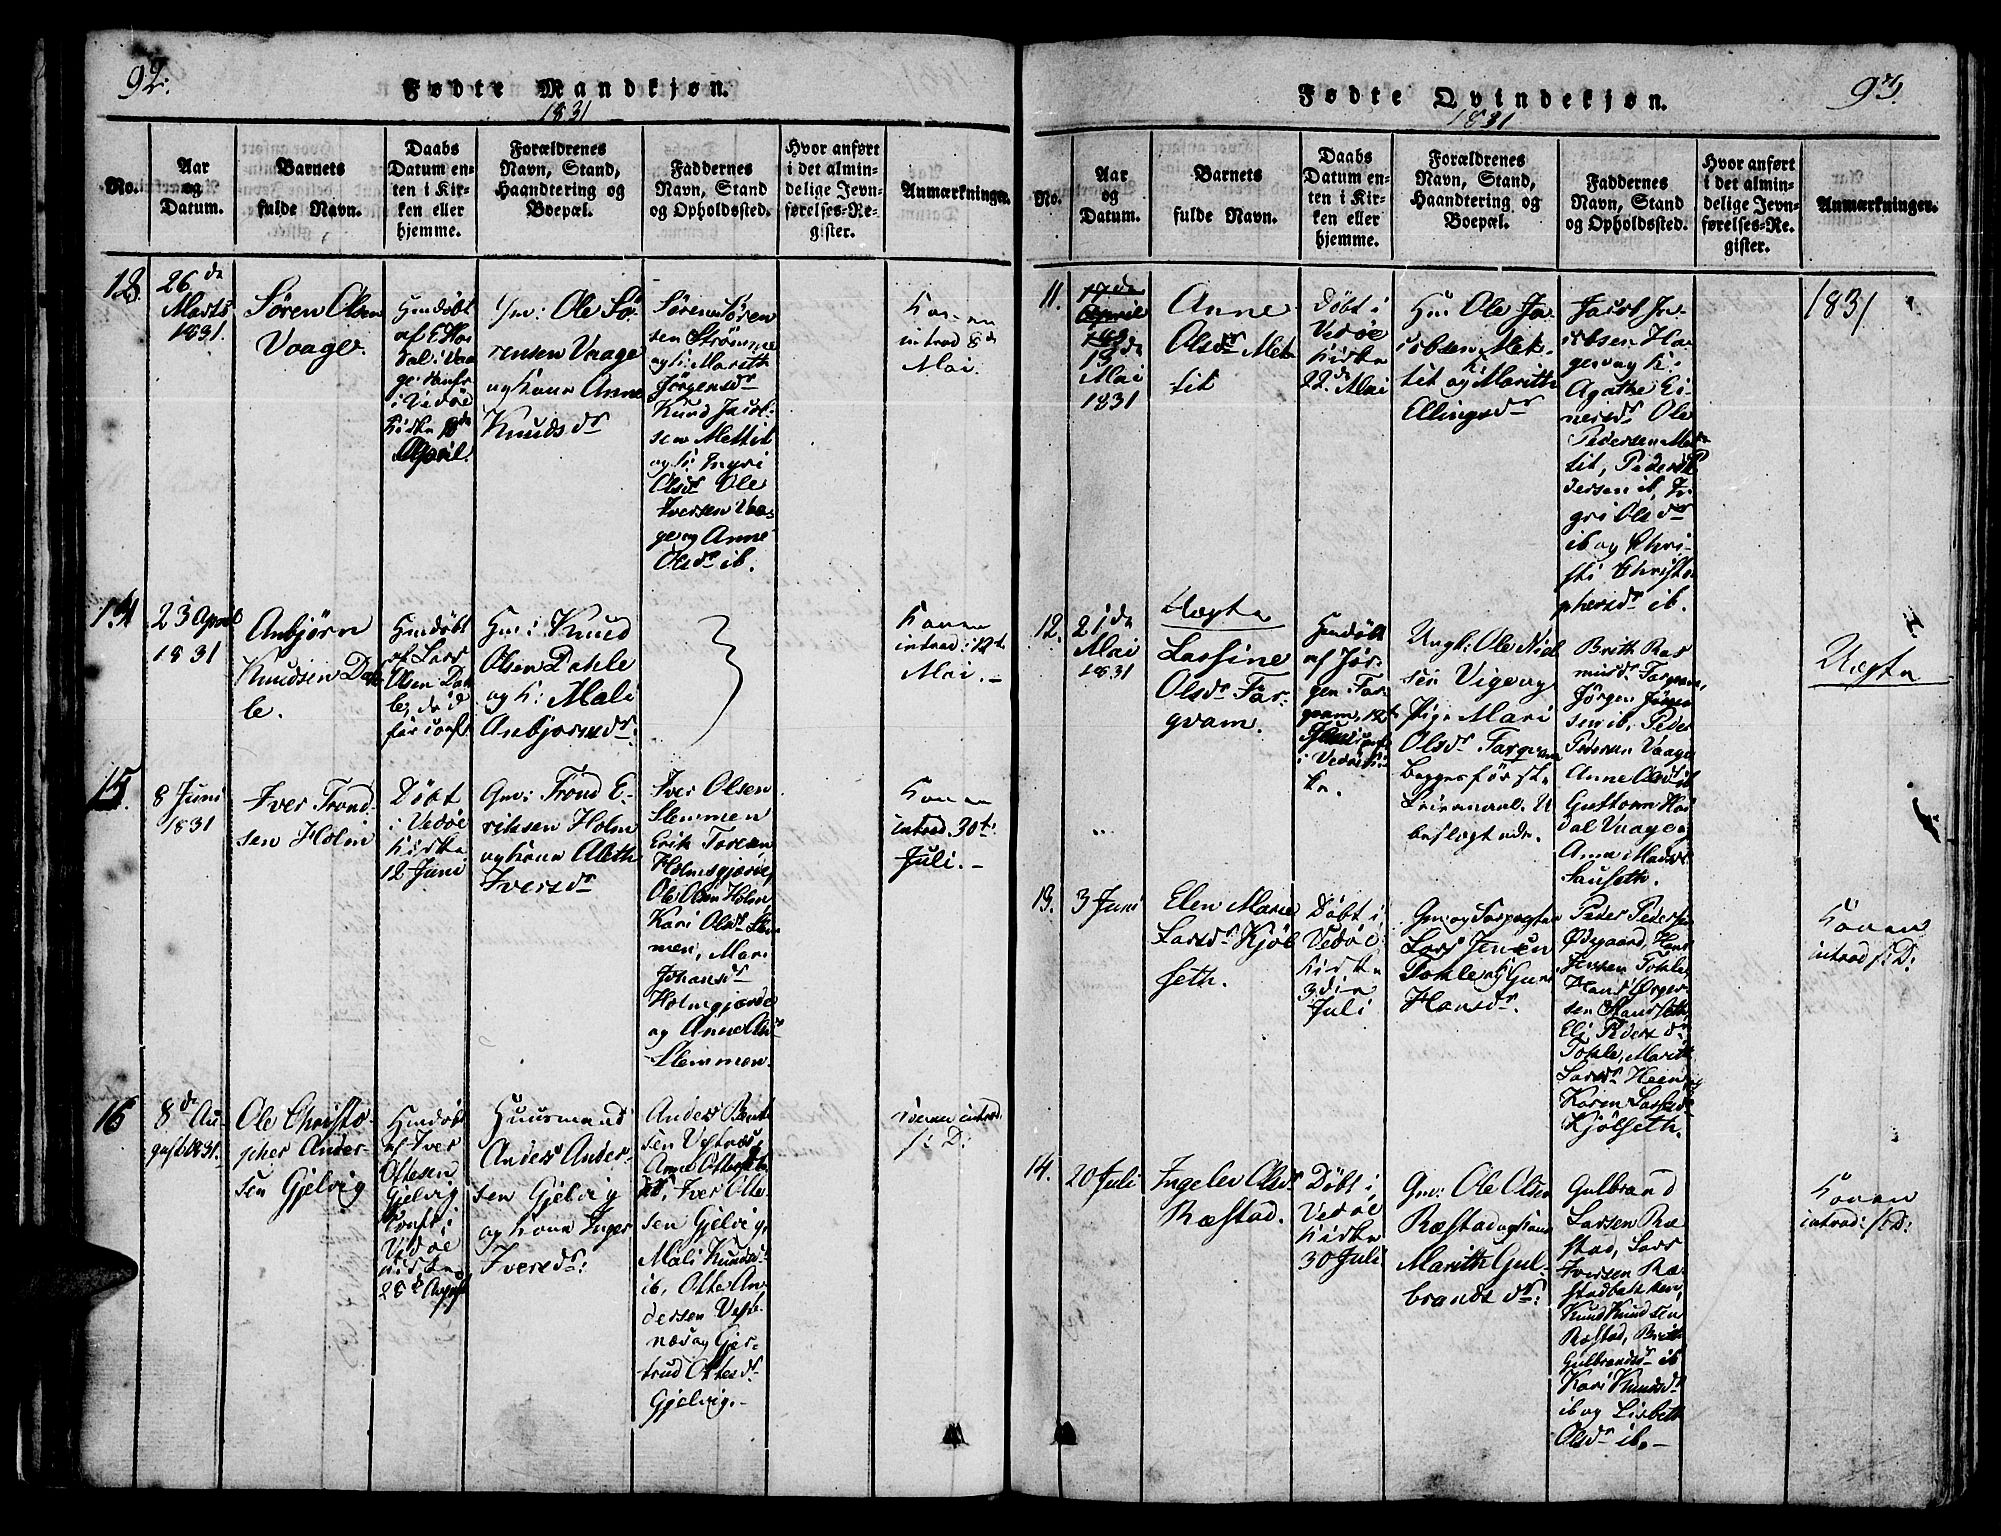 92.
Fødte Mandkjøn.
1831
No.
Aar
og
Datum.
Barnets
fulde Navn.
Daabs
Datum en-
ten i Kir-
ken eller
hjemme.
Forældrenes
Navn, Stand,
Haandtering og
Boepæl.
Faddernes
Navn, Stand
og Opholdssted.
Hvor anført
i det almin-
delige Jevn-
førelses-Re-
gister.
Anmærkninger.
26de
Marts
1831.
Søren Olsen
Vaage.
Hmdøbt
i Vedøe
Kirke
April.
Gm: Ole Sö-
rensen Vaage
og Kone Anne
Knudsdr
Sørensören
sen Strömme
og K: Marith
Jörgensdr
Knud Jacob-
sen Mettit
og K: Ingri
Olsdr Ole
Iversen Vaa-
ge og Anne
Olsdr ib.
Konen
introd 8de
Mai.
14
23 April
1831
Anbjörn
Knudsen Dah-
le.
Hmdøbt
af Lars
Olsen Dah-
le, død
før conf.
Gm: Knud
Olsen Dahle
og K: Mali
Anbjørnsdr:
Konen
introd: 12t
Mai.-
15.
8 Juni
1831
Iver Trond-
sen Holm
Döbt
i Vedöe
Kirke
12 Juni
Gm: Trond E-
riksen Holm
og Kone Aleth
Iversdr
Iver Olsen
Slemmen
Erik Toresen
Holmsgjærde,
Ole Olsen Holm
Kari Olsdr Slem-
men, Mari
Johansdr
Holmgjærde
og Anne
Slemmen.
Konen
introd. 30t:
Juli.-
16
8de Au-
gust 1831.
Ole Christo-
pher Ander-
sen Gjelvig
Hmdøbt
af Iver
Ottesen
Gjelvig
Conf: i
Vedøe
Kirke
28d August
Huusmand
Anders Ander-
sen Gjelvig
og Kone Inger
Iversdr:
Anders
sen Vestnæs,
Iver Otte-
sen Gjelvig,
Mali Knudsdr
ib, Otte An-
dersen Vest-
næs og Gjer-
trud Ottesdr
Gjelvig.-
introd.
s: D:
93.
Fødte Qvindekjøn.
1831
No.
Aar
og
Datum.
Barnets
fulde Navn.
Daabs
Datum en-
ten i Kir-
ken eller
hjemme.
Forældrenes
Navn, Stand,
Haandtering og
Boepæl.
Faddernes
Navn, Stand
og Opholdssted.
Hvor anført
i det almin-
delige Jevn-
førelses-Re-
gister.
Anmærkninger.
11.
17de
April
13de
Mai
1831
Anne
Olsdr Met-
tit
Döbt i
Vedøe
Kirke
22de Mai
Gm: Ole Ja-
cobsen Met-
tit og K: Marith
Ellingsdr
Jacob Ja-
cobsen
og K:
Agathe Ei-
nersdr Ole
Pedersen Met-
tit, Peder Pe-
dersen ib, In-
gri Olsdr
ib og Chri-
sti Christo-
phersdr ib.
1831
12.
21de
Mai
1831
Uægte
Lassine
Olsdr Far-
qvam.
Hmdøbt
af Jör-
gen Far-
qvam, 12t
i Vedøe Kir-
ke.
Ungk: Ole Niel-
sen Vige og
Pige Mari
Olsdr Farqvam
Begges første
Leiermaal. U-
beslægtede.
Brith Ras
musdr Farqvam,
Jörgen Jörgen
sen ib, Peder
Pedersen Vaage
Anne Olsdr ib
Gustava Ho-
dal Vaagen
Anne Madsdr
Sauseth.
Uægte
13.
3 Juni
Elen Marie
Larsdr Kjöl
seth.
Döbt i
Vedøe
Kirke
3die
Juli
Gm: og Forpagter
Lars Jensen
Tokle og K: Guri
Hansdr.
Peder Peders
Ødegaard, Hans
Jensen Tokle,
Hans Örger-
sen
Eli Pedersdr
Tokle, Marith
Larsdr Heen,
Karen Larsdr
Kjölseth.
Konen
introd s: D:
14.
20 Juli
Ingelev Olsdr
Ræstad.
Döbt i
Vedøe
Kirke
30 Juli
Gm: Ole Olsen
Ræstad og Kone
Marith Gul-
brandsdr:
Gulbrand
Larsen Ræ
stad, Lars
Iversen Ræ-
stadbakken,
Knud Knudsen
Ræstad, Brith
Gulbrandsdr ib
Kari Knudsdr
ib og Lisbeth
Olsdr ib.-
Konen
introd: s: D: